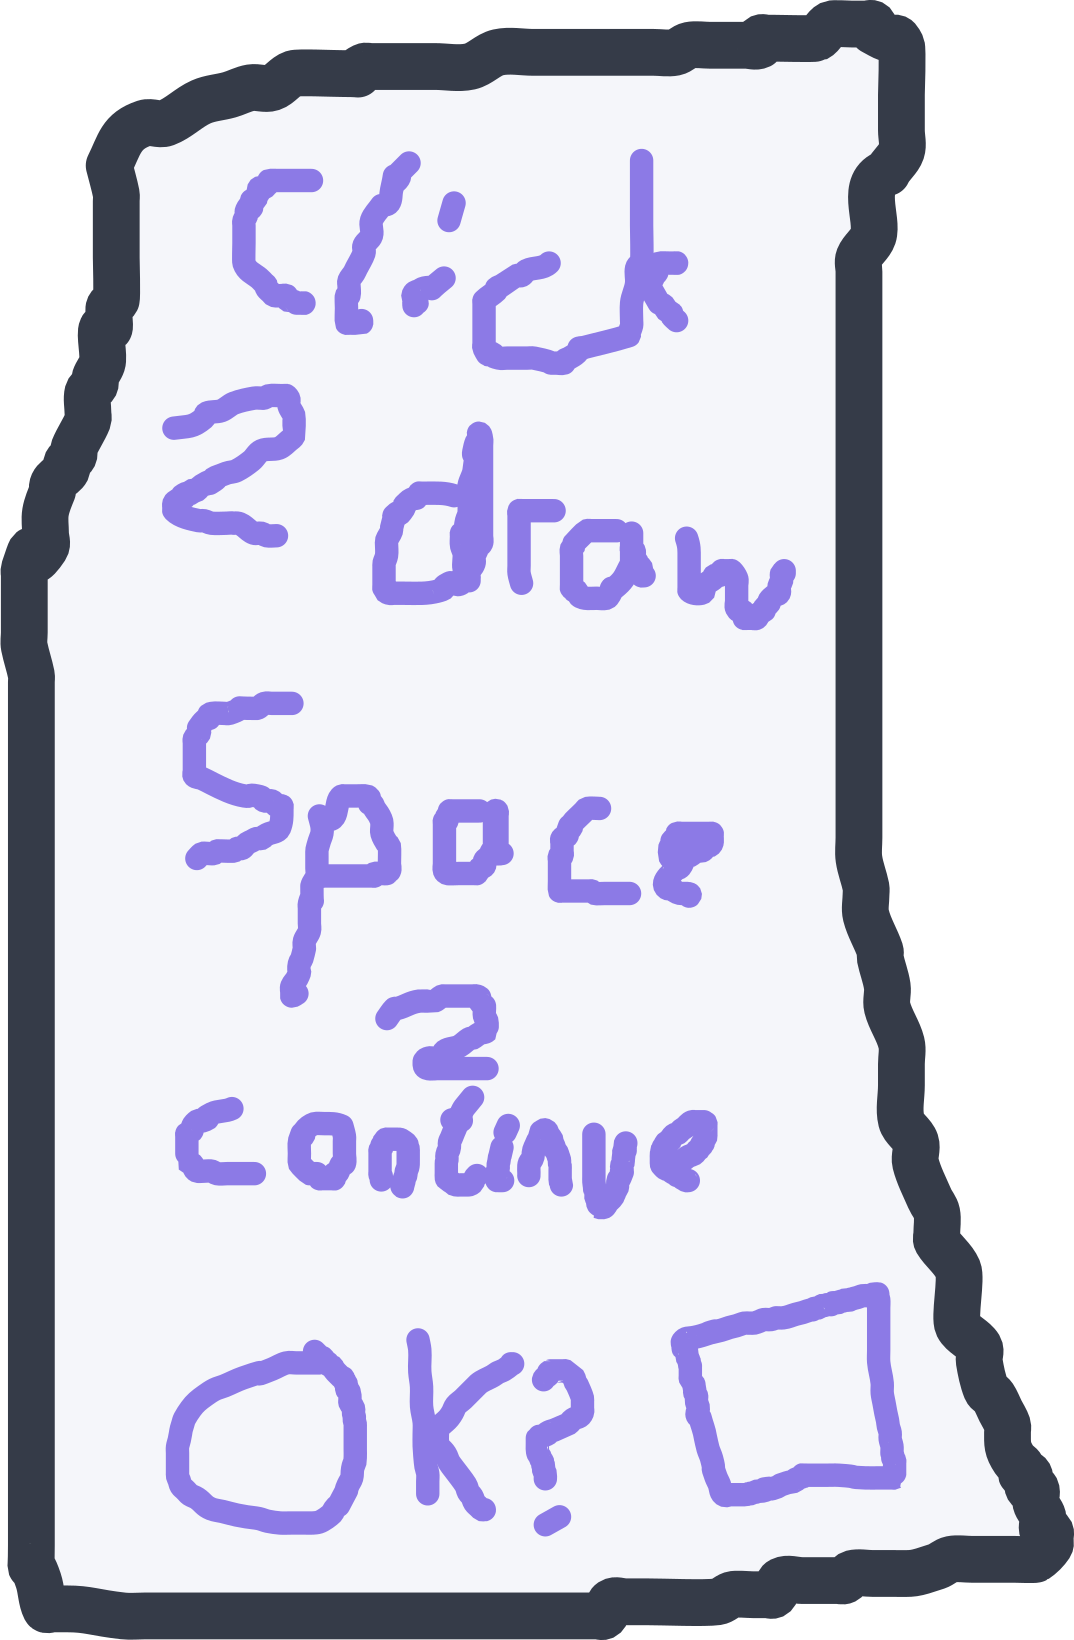 Click
2 draw
Space
2
continue
OK?